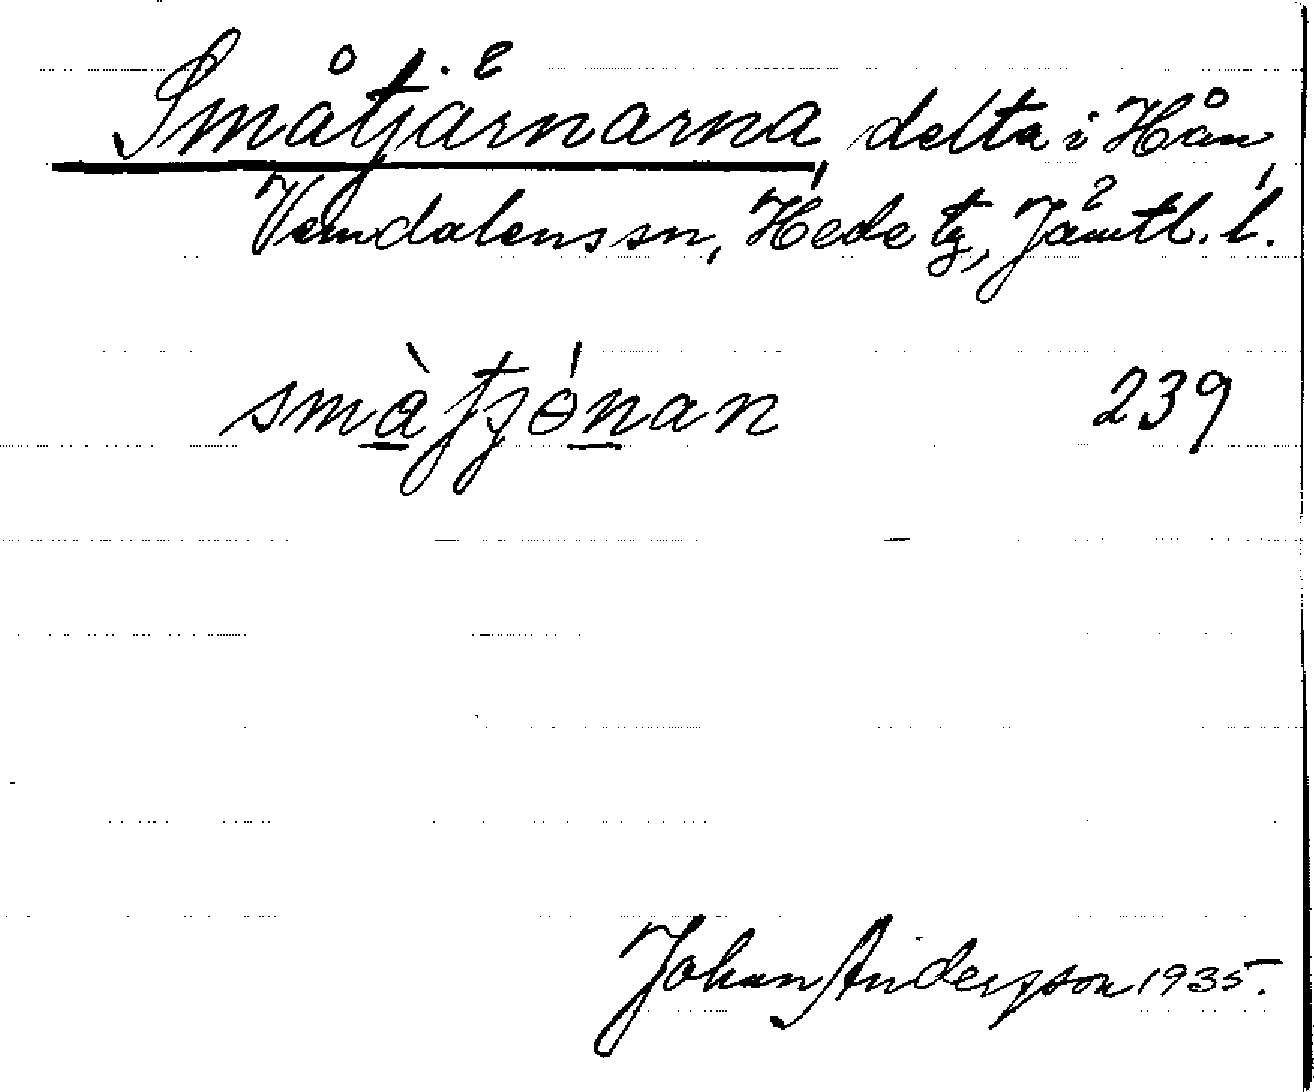 Småtjärnarna, delta i Hån,
Vemdalens sn, Hede tg, Jämtl. l.
smàtjɵ́nan 239
Johan Andersson 1935.